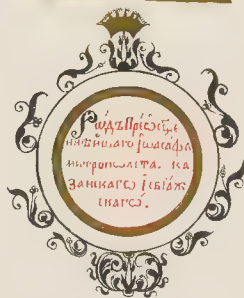 Рѡдъ Прео҃сще
ннѣишагѡ Іѡасафа
митрополита. ка
занскагѡ і свіяж
скагѡ.